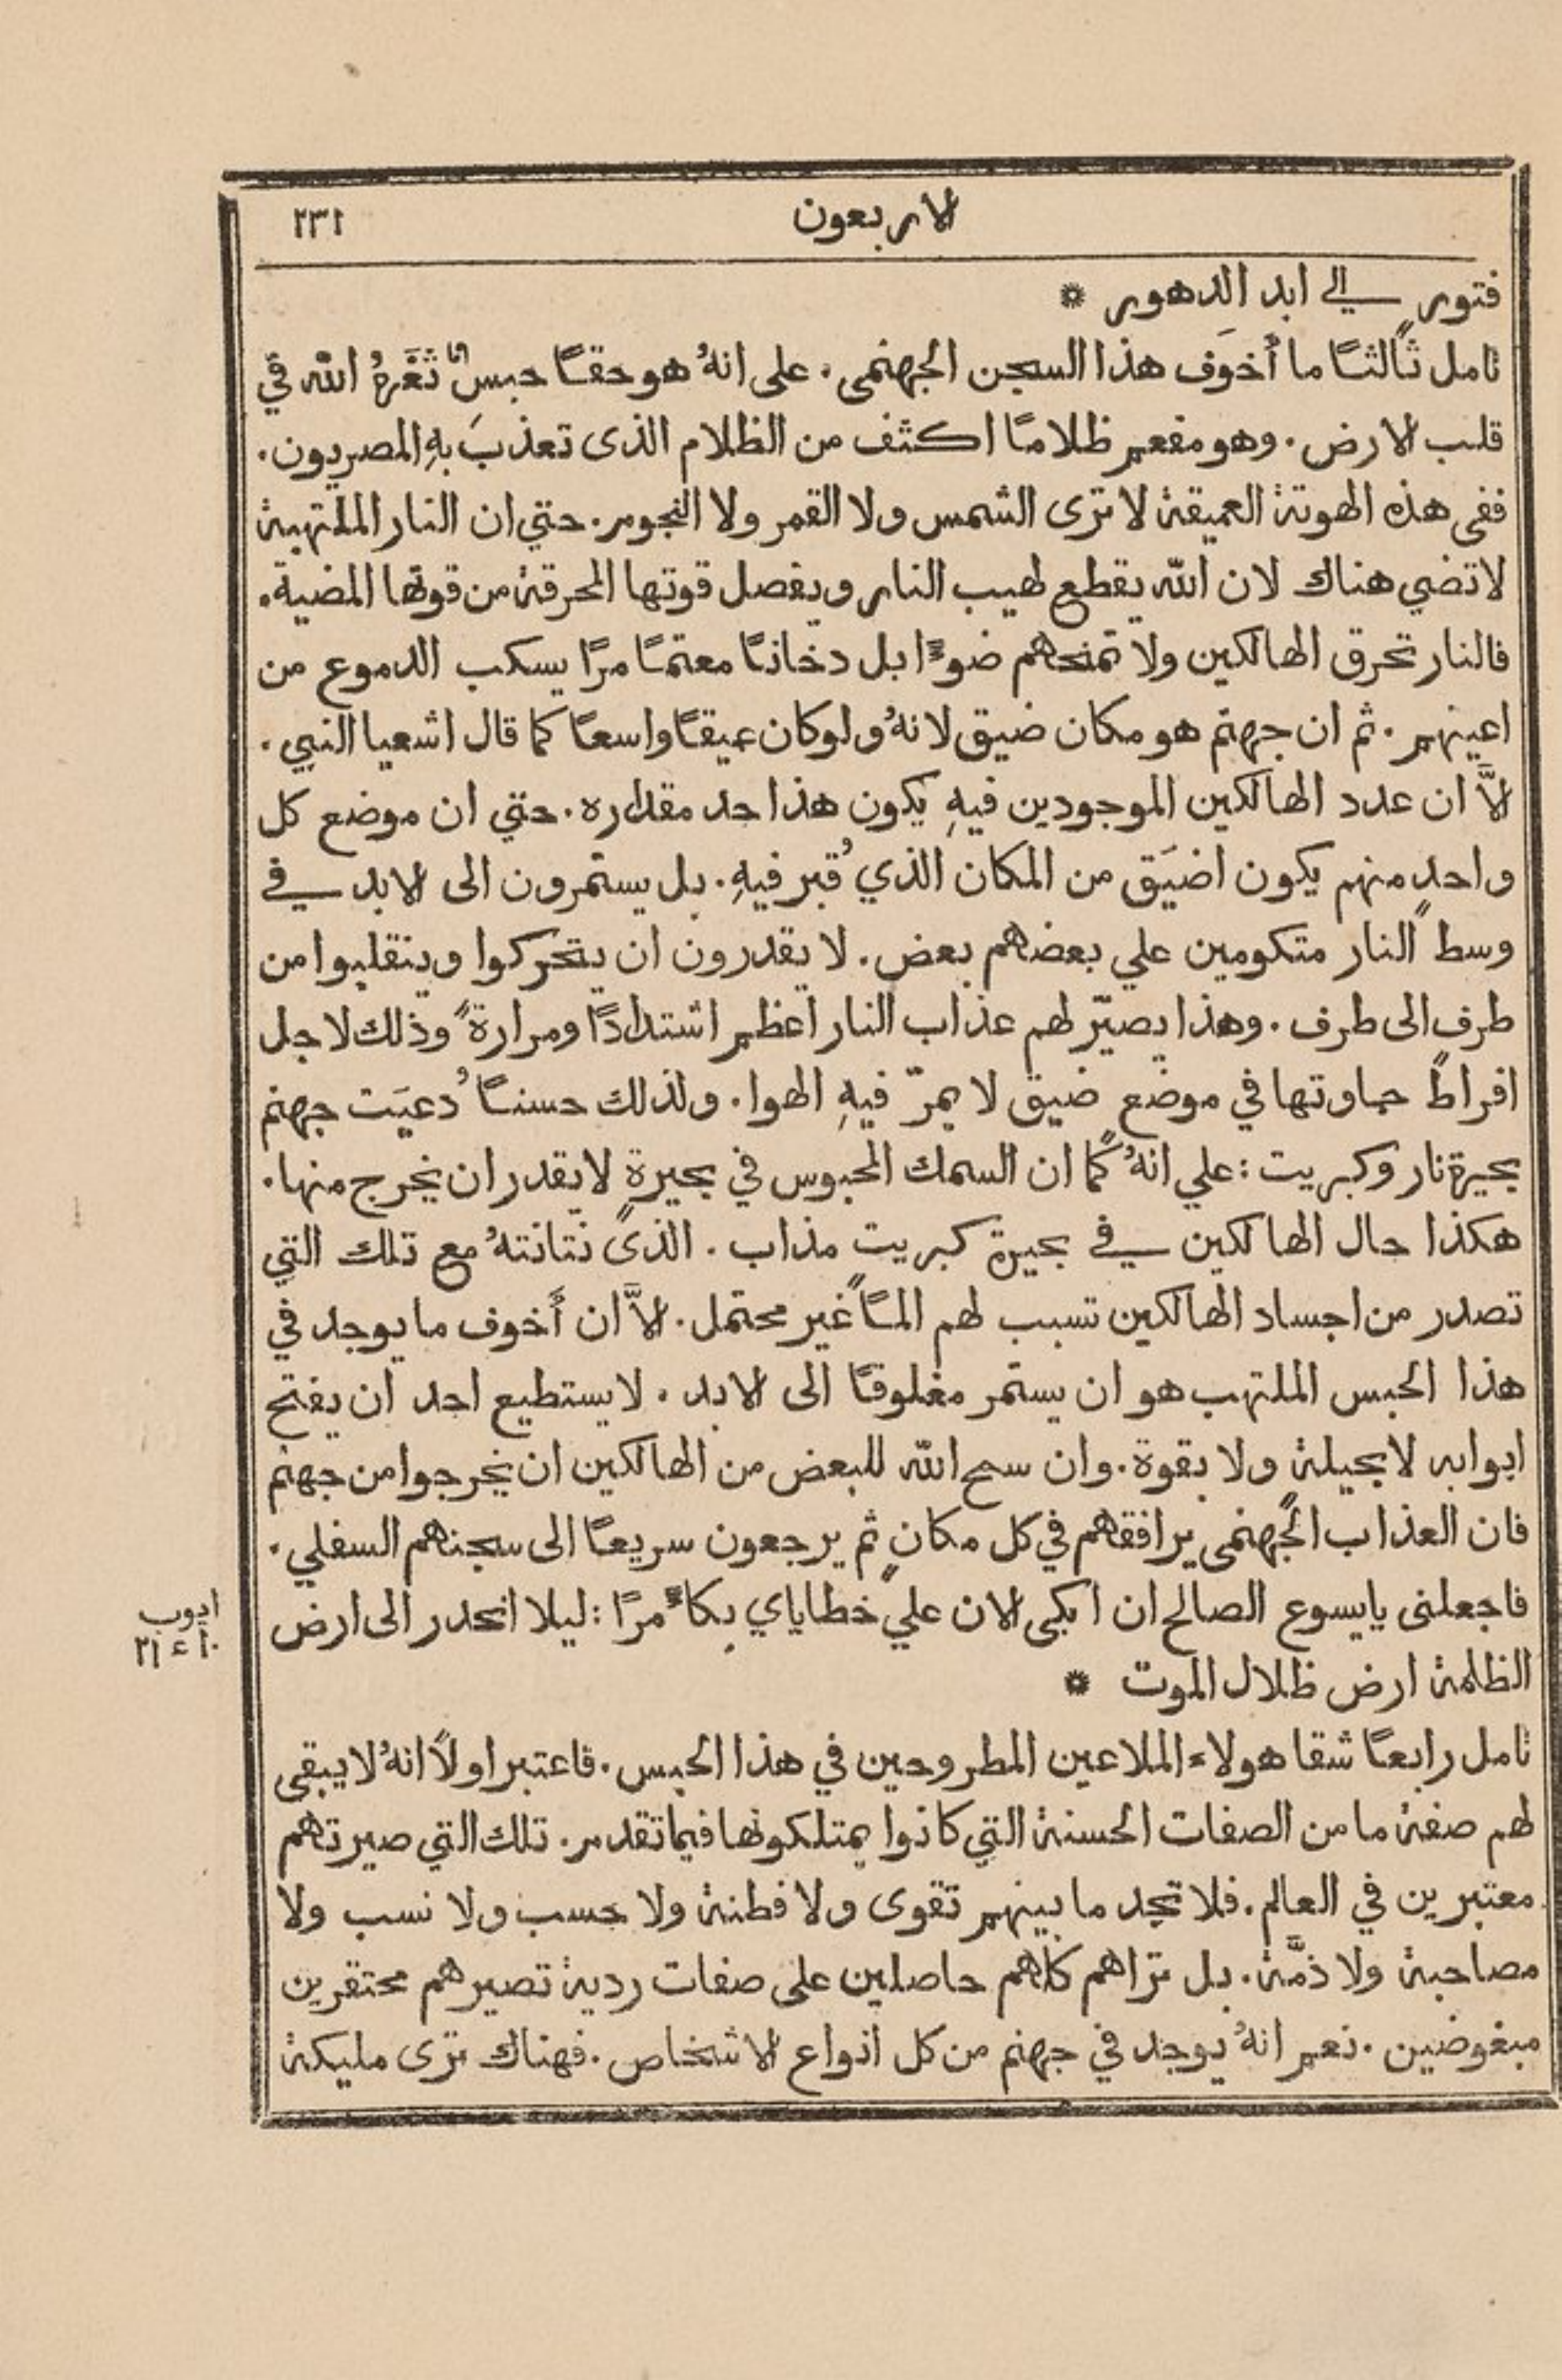 الاربعون ٢٣١
فتور الي ابد الدهور *
تامل ثالثًا ما أخوَف هذا السجن الجهنمى. على انهُ هو حقًا حبس ثَغَرهُ الله في
قلب الارض. وهو مفعم ظلامًا اكثف من الظلام الذى تعذبَ بهِ المصريون.
ففى هذه الهوتة العميقة لا ترى الشمس ولا القمر ولا النجوم. حتي ان النار الملتهبة
لا تضي هناك لان الله يقطع لهيب النار ويفصل قوتها المحرقة من قوتها المضية.
فالنار تحرق الهالكين ولا تمنحهم ضوءًا بل دخانًا معتمًا مرًا يسكب الدموع من
اعينهم. ثم ان جهنم هو مكان ضيق لانهُ ولو كان عميقًا واسعًا كما قال اشعيا النبي.
الاَّ ان عدد الهالكين الموجودين فيهِ يكون هذا حد مقداره. حتي ان موضع كل
واحدٍ منهم يكون اضيَق من المكان الذي قُبر فيهِ. بل يستمرون الى الابد في
وسط النار متكومين علي بعضهم بعض. لا يقدرون ان يتحركوا وينقلبوا من
طرف الى طرف. وهذا يصيّر لهم عذاب النار اعظم اشتدادًا ومرارةً وذلك لاجل
افراط حماوتها في موضع ضيق لا يمرّ فيهِ الهوا. ولذلك حسنًا دُعيَت جهنم
بحيرة نار وكبريت: علي انهُ كما ان السمك المحبوس في بحيرةٍ لا يقدر ان يخرج منها.
هكذا حال الهالكين في بحيرة كبريت مذاب. الذى نتانتهُ مع تلك التي
تصدر من اجساد الهالكين تسبب لهم المًا غير محتمل. الاَّ ان أخوف ما يوجد في
هذا الحبس الملتهب هو ان يستمر مغلوقًا الى الابد. لا يستطيع احد ان يفتح
ابوابه لا بحيلة ولا بقوة. وان سمح الله للبعض من الهالكين ان يخرجوا من جهنم
فان العذاب الجهنمى يرافقهم في كل مكانٍ ثم يرجعون سريعًا الى سجنهم السفلي.
فاجعلنى يا يسوع الصالح ان ابكى الان علي خطاياي بِكاءً مرًا: ليلا انحدر الى ارض
ايوب
١٠ ء ٢١
الظلمة ارض ظلال الموت *
تامل رابعًا شقا هولاء الملاعين المطروحين في هذا الحبس. فاعتبر اولاً انهُ لا يبقى
لهم صفة ما من الصفات الحسنة التي كانوا يمتلكونها فيما تقدم. تلك التي صيرتهم
معتبرين في العالم. فلا تجد ما بينهم تقوى ولا فطنة ولا حسب ولا نسب ولا
مصاحبة ولا ذمَّة. بل تراهم كلهم حاصلين على صفات ردية تصيرهم محتقرين
مبغوضين. نعم انهُ يوجد في جهنم من كل انواع الاشخاص. فهناك ترى مليكة